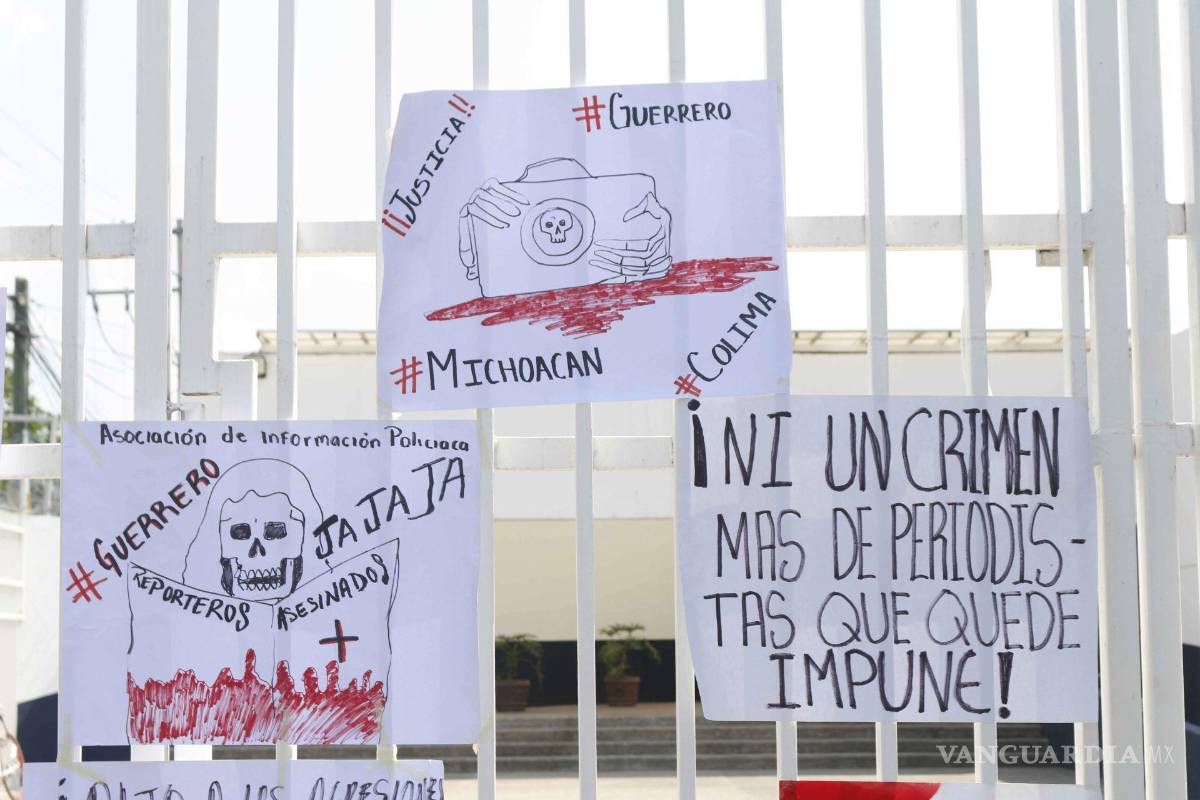 ¡¡JUSTICIA!!
#GUERRERO
#MICHOACAN
#COLIMA
Asociación de Información Policiaca
#GUERRERO
JA JA JA
REPORTEROS
ASESINADOS
¡NI UN CRIMEN
MAS DE PERIODIS-
TAS QUE QUEDE
IMPUNE!
¡ALTO A LAS AGRESIONES
VANGUARDIA MX